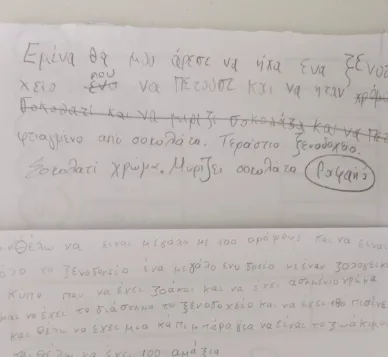 Εμένα θα μου άρεσε να ήπα ένα ξενοδ
χείο που να πετούσε και να ήταν χρώμα
Σοκολατί και να μιρίζι σοκολάτα και να
φτιαγμένο από σοκολάτα. Τεράστιο ξενοδοχείο.
Σοκολατί χρώμα. Μυρίζει σοκολάτα Ραφαήλ
Θέλω να είναι μεγάλο με 100 ορόφους και να είναι
όλο το ξενοδοχείο ένα μεγάλο ενυδρείο με έναν ζωλογικό
κυπο που να έχει ζοάκια και να έχει ασημένιο χρώμα
και να έχει το διάστημα το ξενοδοχείο και να έχει
και θέλω να έχει μια για να είναι το
θέλω να έχει 100 αμάξια